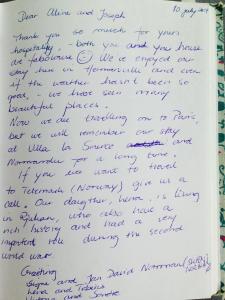 10 july 2014
Dear Aline and Joseph
Thank you so much for yours
hospitality, - both you and your house
are fabolouse ☺ We've enjoyed our
stay here in and even
if the weather hasn't been so
good, - we have seen many
beautiful places.
Now we are travelling on to Paris,
but we will remember our stay
at Villa La Source and
for a long time.
If you ever want to travel
to Telemark (Norway) give us a
call. Our daughter, lena, is living
in Rjukan, who also have a
rich history and had a very
important role during the second
world war.
and Jan David
lena and Tobias
and